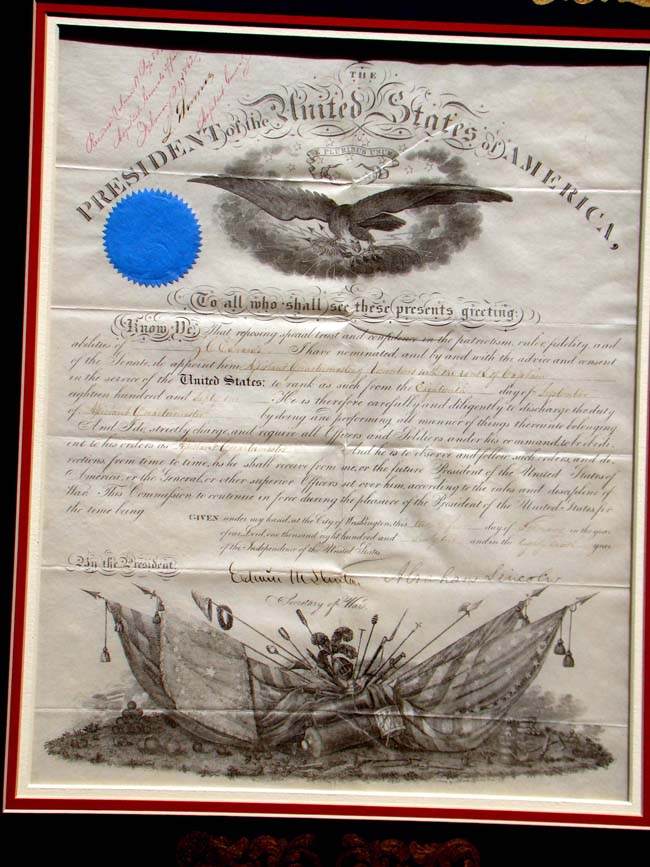 THE
PRESIDENT of the United States of AMERICA,
E PLURIBUS UNUM
To all who shall see these presents greeting:
Know Ye, That reposing special trust and confidence in the patriotism, valor, fidelity, and
abilities of I have nominated, and by and with the advice and consent
of the Senate, do appoint him Assistant Quartermaster with the rank of Captain
in the service of the United States: to rank as such from the Eighteenth day of September
eighteen hundred and He is therefore carefully and diligently to discharge the duty
of Assistant Quartermaster by doing and performing all manner of things thereunto belonging.
And I do strictly charge, and require all Officers and Soldiers under his command, to be obedi-
ent to his orders as Assistant Quartermaster And he is to observe and follow such orders, and di-
rections, from time to time, as he shall receive from me, or the future President of the United States of
America, or the General, or other superior Officers set over him, according to the rules and discipline of
War. This Commission to continue in force during the pleasure of the President of the United States, for
the time being.
GIVEN under my hand, at the City of Washington, this day of in the year
of our Lord, one thousand eight hundred and and in the year
of the Independence of the United States.
By the President
Edwin M Stanton Abraham Lincoln
Secretary of War.